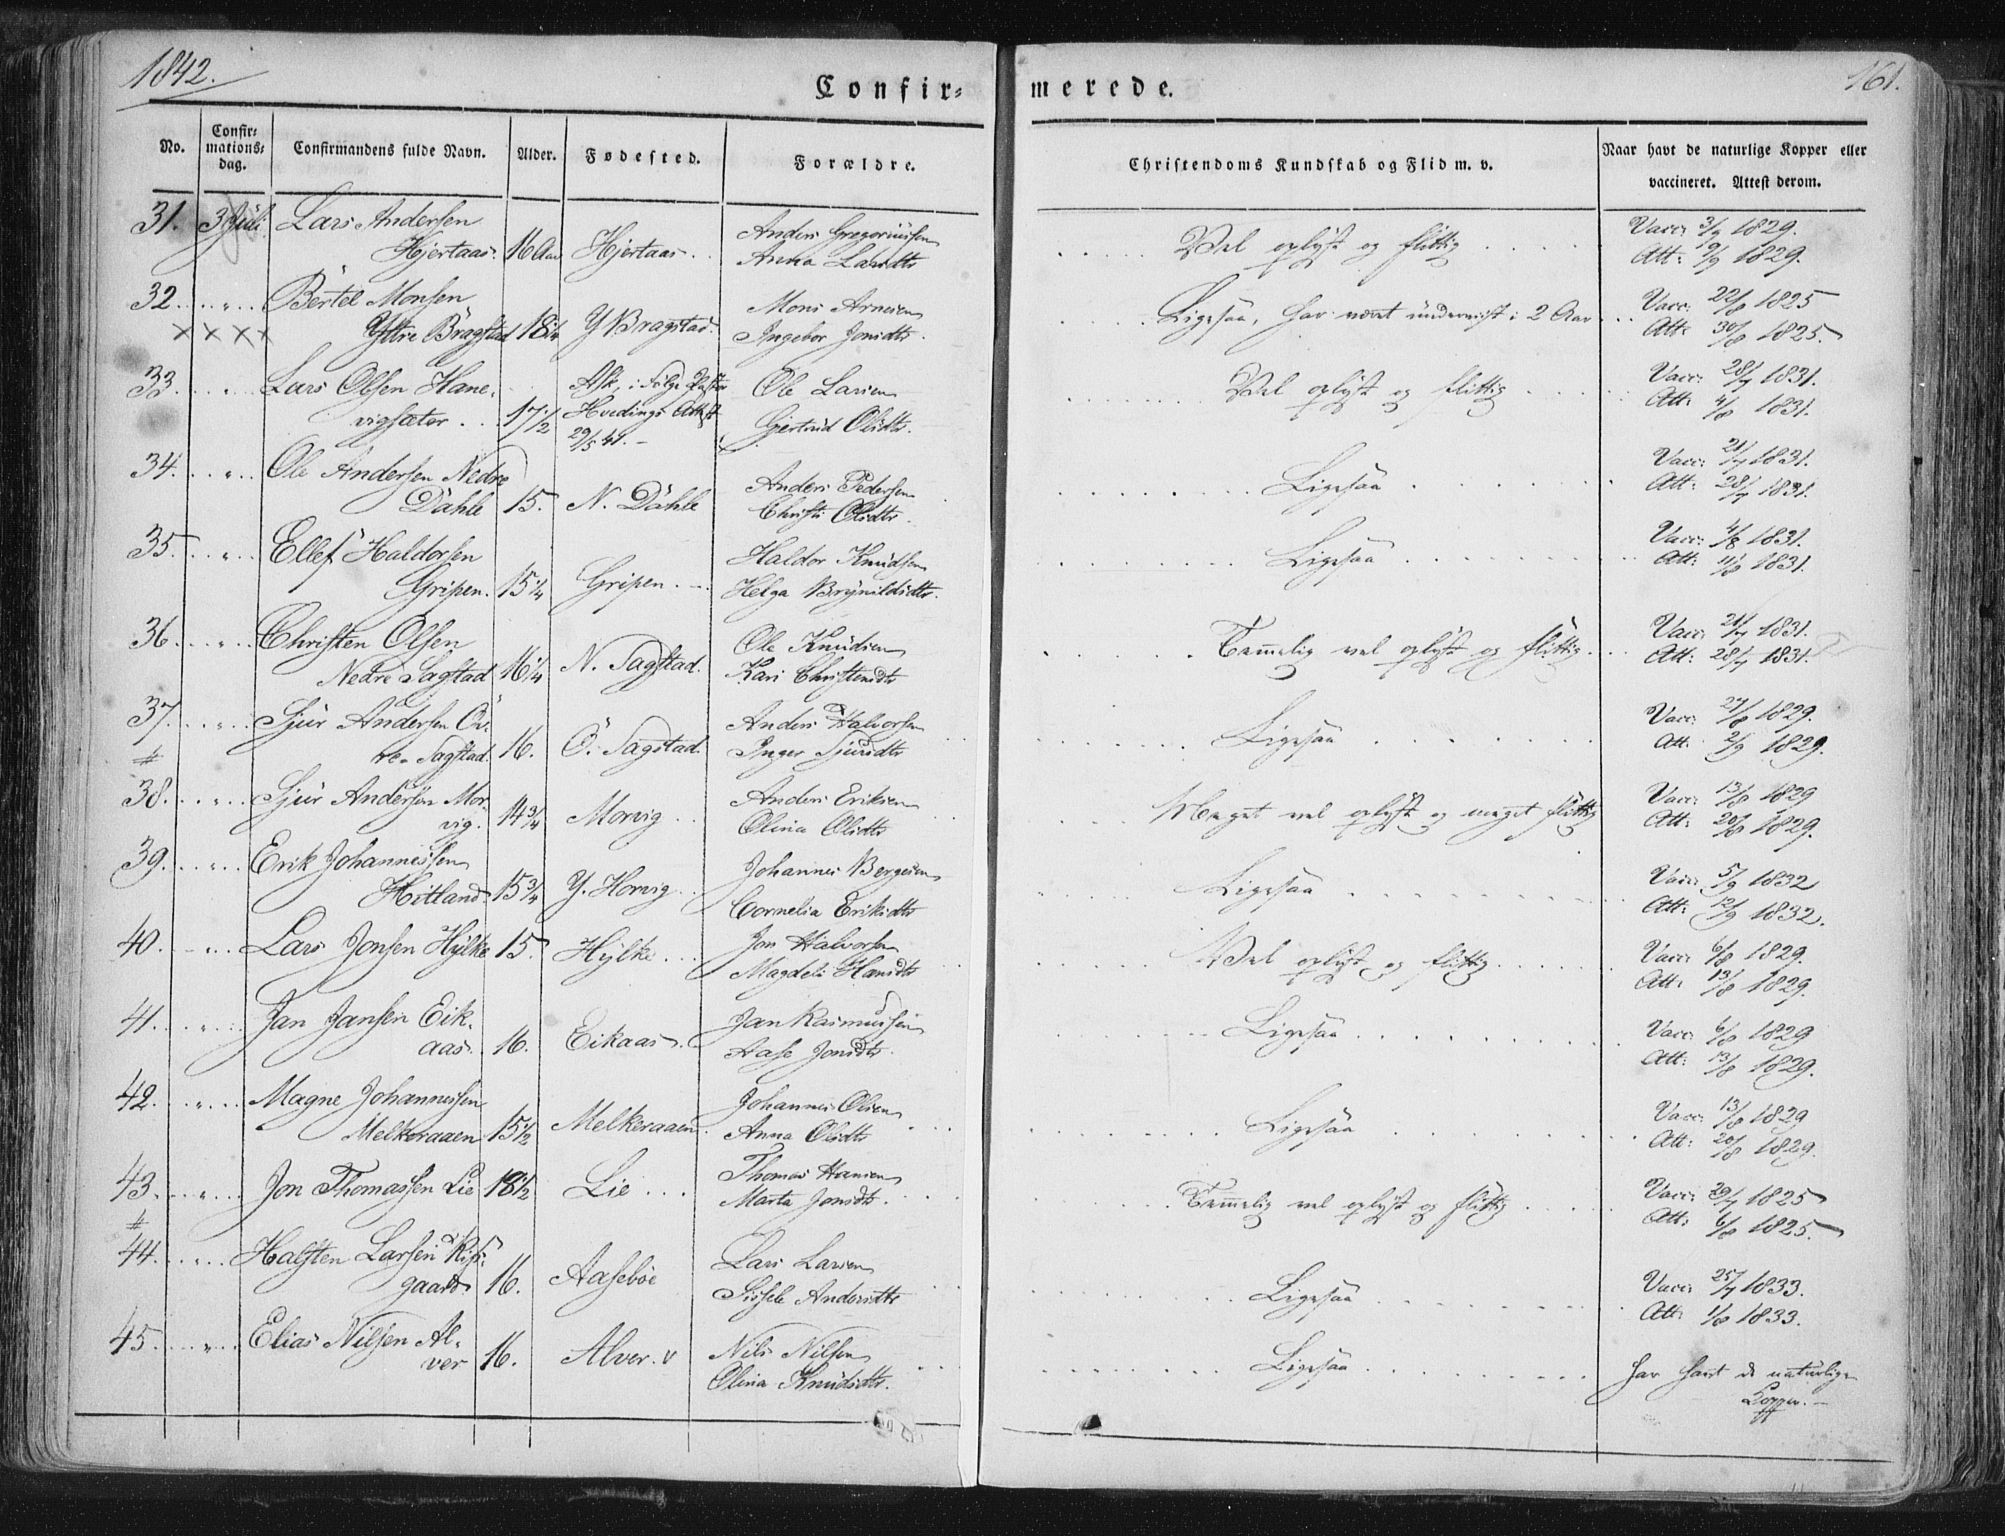 1842.
161.
Confir= merede.
No.
Confir=
mations=
dag.
Confirmandens fulde Navn.
Alder.
Fødested.
Forældre.
Christendoms Kundskab og Flid m. v.
Naar havt de naturlige Kopper eller
vaccineret. Attest derom.
31. 3 Juli. Lars Andersen
Hjertaas. 16 Aar Hjertaas.
Anders Gregoriussen
Anna Larsdtr
Vel oplyst og flittig
Vacc: 3/9 1829.
Att: 9/9 1829.
32. " Bertel Monsen
Yttre Bragstad 18 1/4 Y Bragstad.
Mons Arnesen
Ingebor Jonsdtr.
Ligesaa, har været undervist i 2 Aar
Vacc: 22/8 1825
Att: 30/8 1825.
× × × ×
33. " Lars Olsen Hane-
vigsæter 17 1/2
Ask, i Følge Pastor
Hvedings Attest
29/5 41.
Ole Larsen
Gjertrud Olsdtr.
Vel oplyst og flittig
Vacc: 28/7 1831.
Att: 4/8 1831.
34. " Ole Andersen Nedre
Dahle 15. N. Dahle
Anders Pedersen
Christi Olsdtr.
Ligesaa
Vacc: 21/7 1831.
Att: 28/7 1831.
35. " Ellef Haldorsen
Gripen. 15 1/4 Gripen.
Haldor Knudsen
Helga Brynildsdtr.
Ligesaa
Vacc: 4/8 1831.
Att: 11/8 1831.
36. " Christen Olsen
Nedre Sagstad 16 1/4 N. Sagstad.
Ole Knudsen
Kari Christensdtr
Temmelig vel oplyst og flittig
Vacc: 21/7 1831.
Att: 28/7 1831.
37. " Sjur Andersen Öv-
re Sagstad. 16. Ö. Sagstad.
Anders Halvorsen
Inger Sjursdtr
Ligesaa
Vacc: 27/8 1829.
Att. 2/9 1829.
#
38. " Sjur Andersen Mor-
vig. 14 3/4 Morvig
Anders Eriksen
Olina Olsdtr
Meget vel oplyst og meget flittig
Vacc: 13/8 1829
Att: 20/8 1829.
39. " Erik Johannessen
Hitland 15 3/4 Y. Horvig
Johannes Bergesen
Cornelia Eriksdtr
Ligesaa
Vacc: 5/9 1832
Att: 12/9 1832.
40. " Lars Jonsen Hylke 15. Hylke
Jon Halvorsen
Magdeli Hansdtr
Vel oplyst og flittig
Vacc: 6/8 1829.
Att: 13/8 1829.
41. " Jan Jansen Eik-
aas. 16. Eikaas.
Jan Rasmussen
Aase Jonsdtr.
Ligesaa
Vacc: 6/8 1829
Att: 13/8 1829.
42. " Magne Johannessen
Melkeraaen 15 1/2 Melkeraaen.
Johannes Olsen
Anna Olsdtr
Ligesaa
Vacc: 13/8 1829
Att: 20/8 1829.
43. " Jon Thomassen Lie 18 1/2 Lie
Thomas Hansen
Marta Jonsdtr.
Temmelig vel oplyst og flittig
Vacc: 29/7 1825
Att: 6/8 1825.
#
44. " Halsten Larsen
gaard 16. Aasebøe
Lars Larsen
Sissele Andersdtr
Ligesaa
Vacc: 25/7 1833.
Att: 1/8 1833.
45. " Elias Nilsen Al-
ver 16. Alver. v
Nils Nilsen
Olina Knudsdtr.
Ligesaa
har havt de naturlige
Kopper.